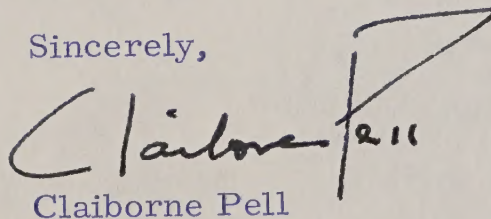 Sincerely,
Claiborne Pell
Claiborne Pell